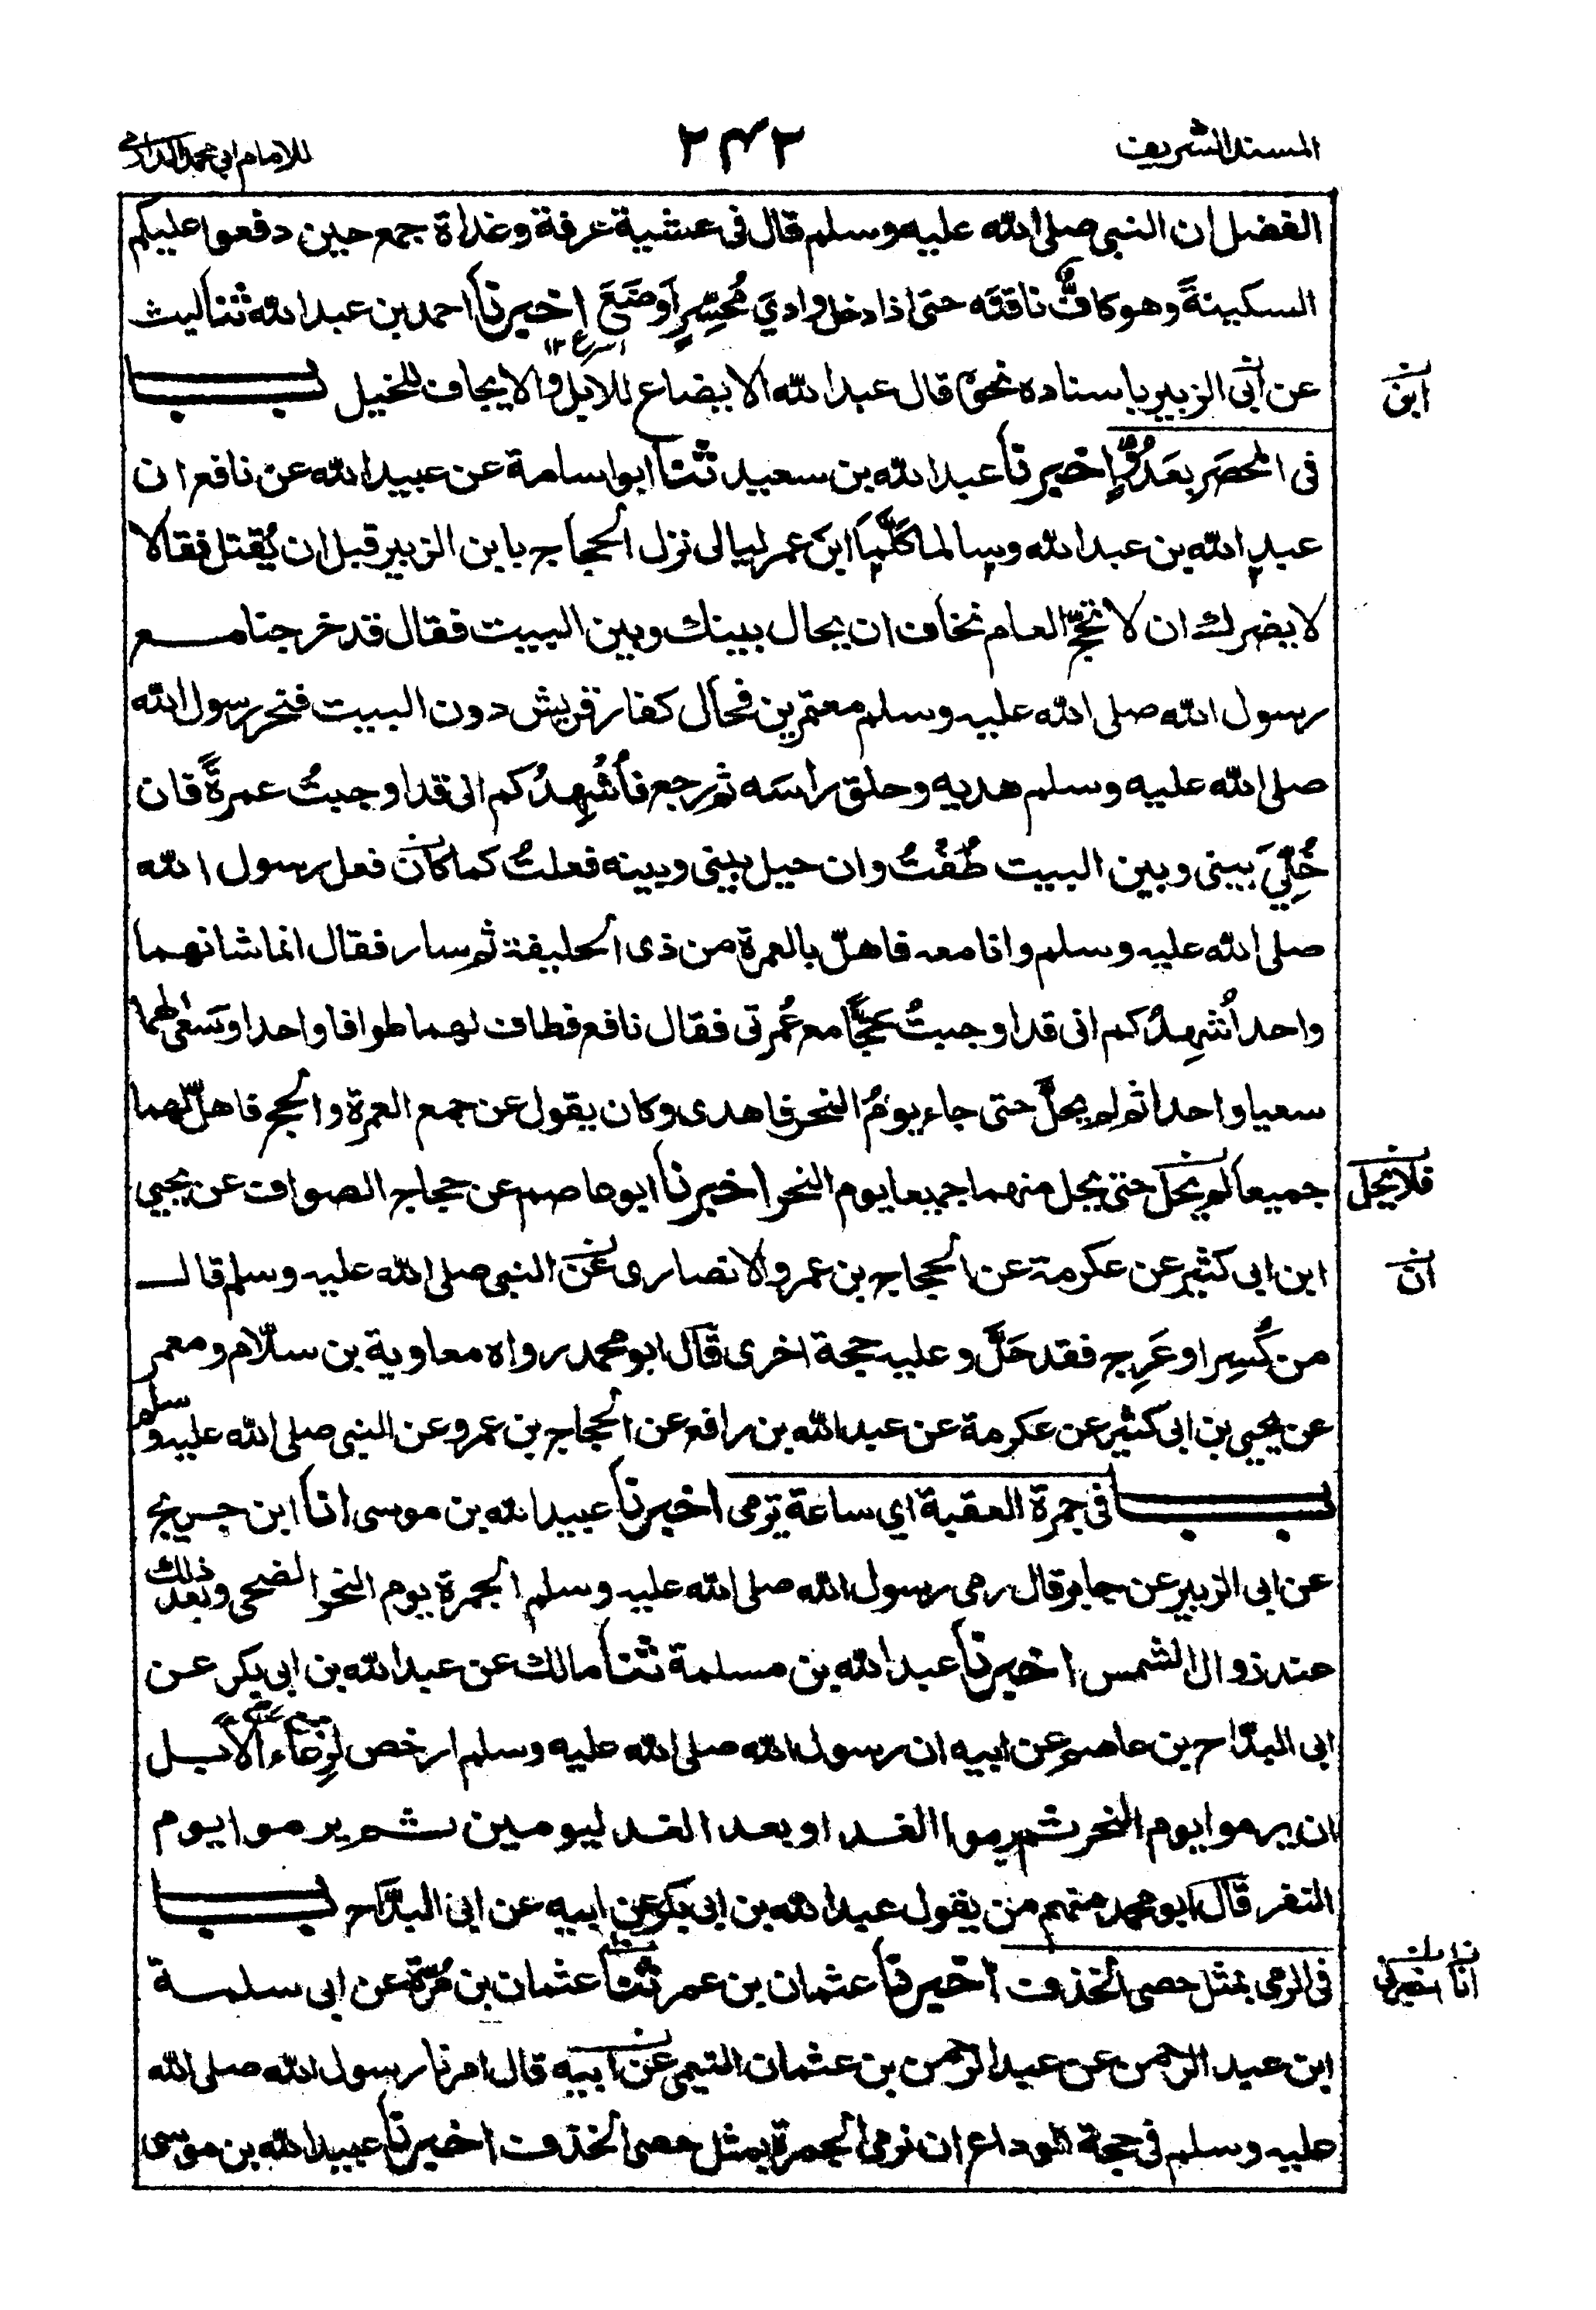 المسند الشريف
٢٤٢
للامام ابي محمد الدارمي
الفضل ان النبي صلى الله عليه وسلم قال فى عشية عرفة وغداة جمع حين دفعوا عليكم
السكينةَ وهو كافٌّ ناقتَه حتى اذا دخل وادِيَ مُحَسِّرٍ اَوضَعَ اخبرنا احمد بن عبد الله ثنا ليث
اسرع ١٢
عن ابى الزبير باسناده نحوه قال عبد الله الايضاع للابل والايجاف للخيل باب
ابن
فى المحصَر بعَدُوٍّ اخبرنا عبد الله بن سعيد ثنا ابو اسامة عن عبيد الله عن نافع ان
عبد الله بن عبد الله وسالما كلَّمَا ابنَ عمر ليالى نزل الحجاج بابن الزبير قبل ان يُقتل فقالا
لا يضرك ان لا تحجّ العام نخاف ان يحال بينك وبين البيت فقال قد خرجنا مع
رسول الله صلى الله عليه وسلم معتمرين فحال كفار قريش دون البيت فنحر رسول الله
صلى الله عليه وسلم هديه وحلق راسَه ثم رجع فاُشْهِدُكم انى قد اوجبتُ عمرةً فان
خُلِّيَ بينى وبين البيت طُفْتُ وان حيل بينى وبينه فعلتُ كما كان فعل رسول الله
صلى الله عليه وسلم وانا معه فاهلّ بالعمرة من ذى الحليفة ثم سار فقال انما شانهما
واحد اُشْهِدُكم انى قد اوجبتُ حجًّا مع عُمرتى فقال نافع فطاف لهما طوافا واحدا وسَعٰى لهما
سعيا واحدا ثم لم يحلَّ حتى جاء يومُ النحر فاهدى وكان يقول عن جمع العمرة والحج فاهلّ لهما
جميعا لم يحل حتى يحل منهما جميعا يوم النحر اخبرنا ابو عاصم عن حجاج الصواف عن يحيى
فلا يحل
ابن ابى كثير عن عكرمة عن الحجاج بن عمرو الانصارى عن النبى صلى الله عليه وسلم قال
ان
من كُسِر او عَرِج فقد حَلَّ وعليه حجة اخرى قال ابو محمد رواه معاوية بن سلّام ومعمر
عن يحيى بن ابى كثير عن عكرمة عن عبد الله بن رافع عن الحجاج بن عمرو عن النبى صلى الله عليه وسلم
باب فى جمرة العقبة اي ساعة ترمى اخبرنا عبيد الله بن موسى انا ابن جريج
عن ابى الزبير عن جابر قال رمى رسول الله صلى الله عليه وسلم الجمرة يوم النحر الضحى وبعد ذلك
عند زوال الشمس اخبرنا عبد الله بن مسلمة ثنا مالك عن عبد الله بن ابى بكر عن
ابى البدّاح بن عاصم عن ابيه ان رسول الله صلى الله عليه وسلم ارخص لِرِعَاء الابل
ان يرموا يوم النحر ثم يرموا الغد او بعد الغد ليومين ثم يرموا يوم
النفر قال ابو محمد منهم من يقول عبد الله بن ابى بكر عن ابيه عن ابى البدّاح باب
فى الرمى بمثل حصى الخذف اخبرنا عثمان بن عمر ثنا عثمان بن مُرّة عن ابى سلمة
انا اخبرنى
ابن عبد الرحمن عن عبد الرحمن بن عثمان التيمى عن ابيه قال امرنا رسول الله صلى الله
عليه وسلم فى حجة الوداع ان نرمى الجمرة بمثل حصى الخذف اخبرنا عبيد الله بن موسى